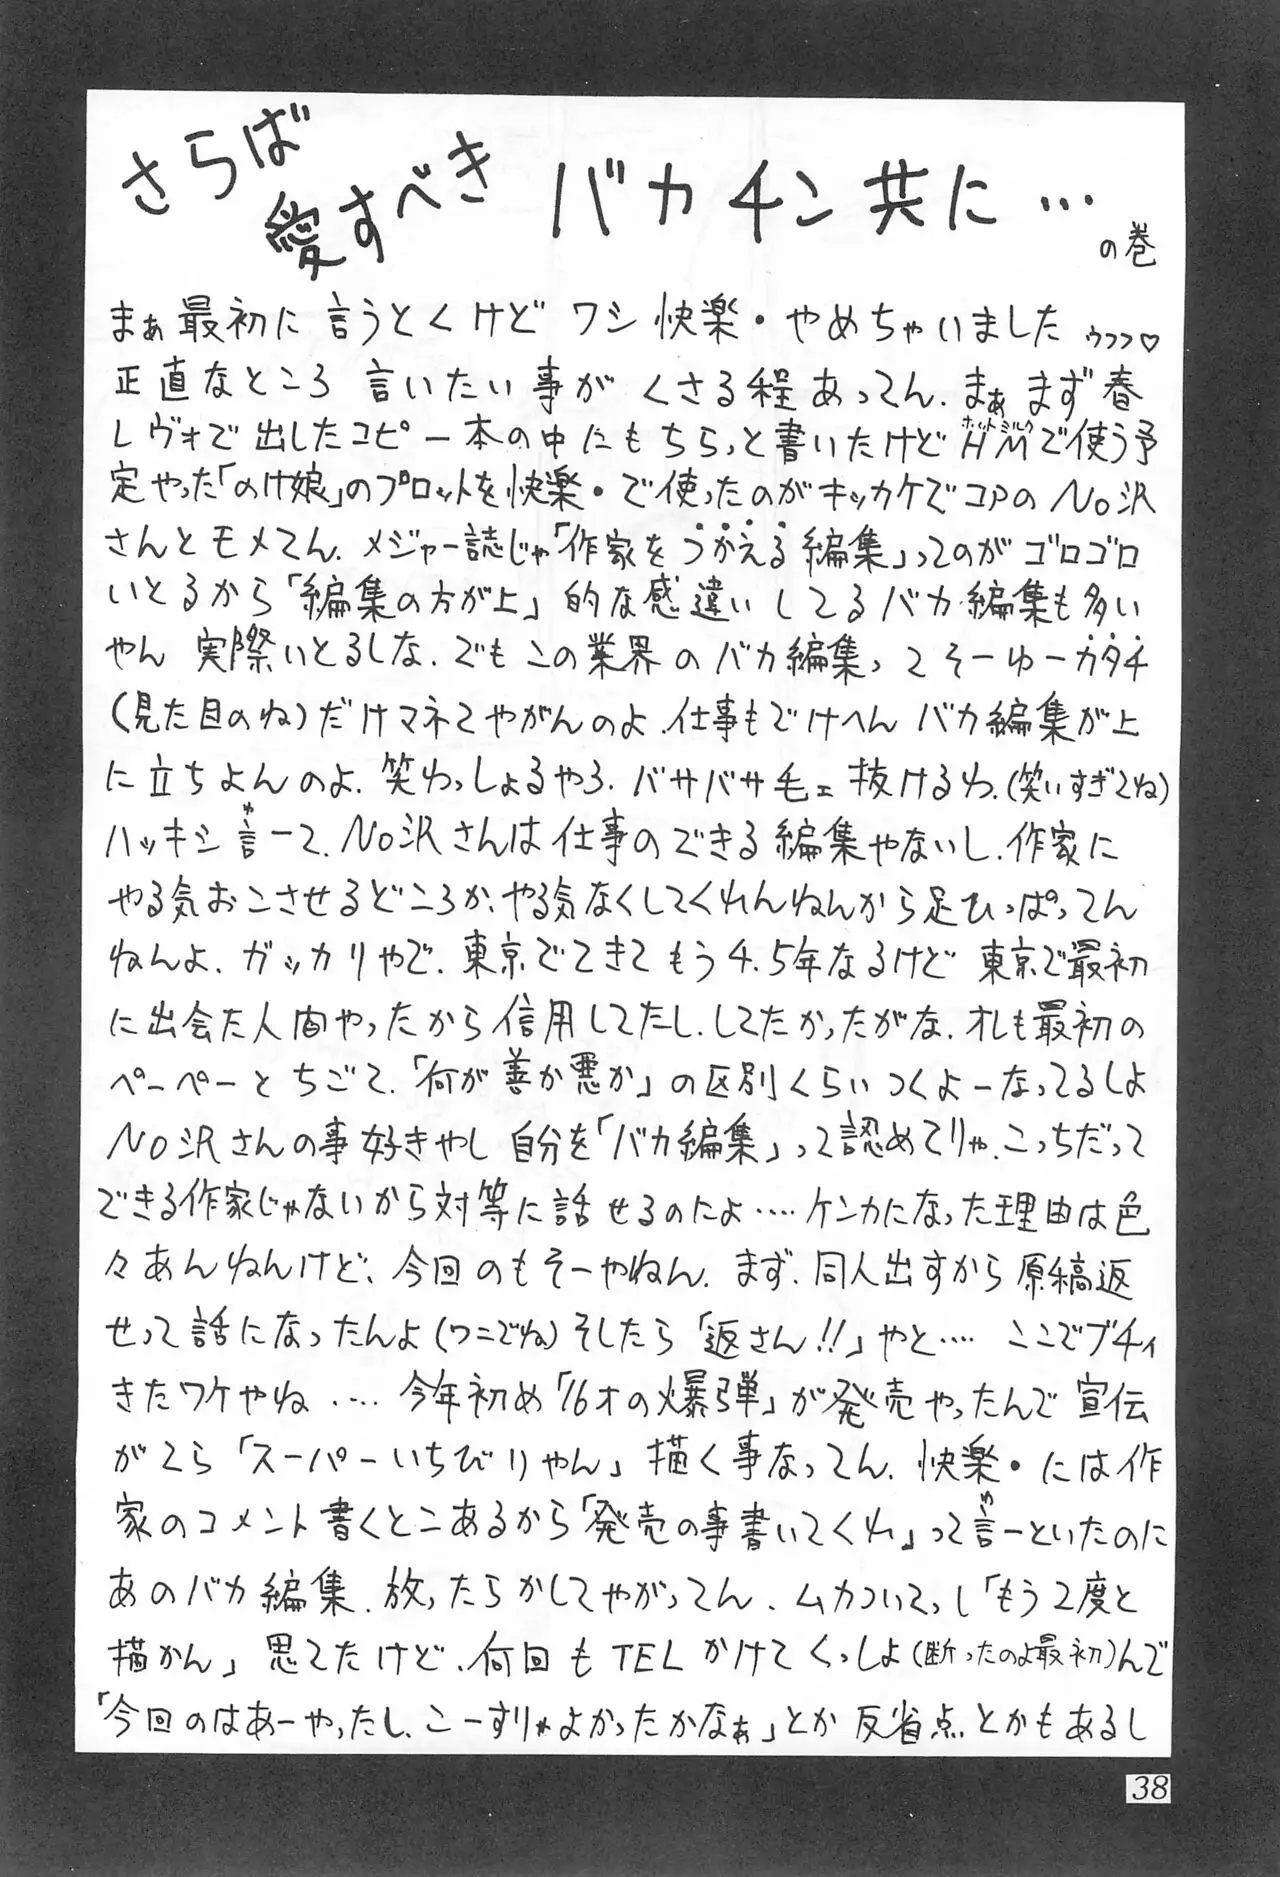 さらば
愛すべき バカチン共に…
の巻
まぁ最初に言うとくけど ワシ 快楽・やめちゃいました ウフフ♡
正直なところ 言いたい事が くさる程あってん. まぁ まず春
レヴォで出したコピー本の中にもちらっと書いたけどHM(ホットミルク)で使う予
定やった「のけ娘」のプロットを快楽・で使ったのがキッカケでコアのNo沢
さんとモメてん. メジャー誌じゃ「作家をつかえる編集」ってのがゴロゴロ
いとるから「編集の方が上」的な感違いしてるバカ編集も多い
やん 実際いとるしな. でもこの業界のバカ編集ってそーゆーカタチ
(見た目のね)だけマネてやがんのよ. 仕事もでけへん バカ編集が上
に立ちよんのよ. 笑わっしょるやろ. バサバサ毛ェ抜けるわ.(笑いすぎてね)
ハッキシ言(ゆ)ーて. No沢さんは仕事のできる編集やないし. 作家に
やる気おこさせるどころか、やる気なくしてくれんねんから足ひっぱってん
ねんよ. ガッカリやで. 東京でてきてもう4.5年なるけど 東京で最初
に出会た人間やったから信用してたし. してたかったがな. オレも最初の
ペーペーとちごて.「何が善か悪か」の区別くらいつくよーなってるしよ
No沢さんの事好きやし自分を「バカ編集」って認めてりゃ. こっちだって
できる作家じゃないから対等に話せるのによ…. ケンカになった理由は色
々あんねんけど、今回のもそーやねん. まず. 同人出すから原稿返
せって話になったんよ(ワニでね)そしたら「返さん!!」やと…. ここでブチィ
きたワケやね. … 今年初め「16才の爆弾」が発売やったんで宣伝
がてら「スーパーいちびりやん」描く事なってん. 快楽・には作
家のコメント書くとこあるから「発売の事書いてくれ」って言(ゆ)ーといたのに
あのバカ編集. 放ったらかしてやがってん. ムカついてっし「もう2度と
描かん」思てたけど. 何回もTELかけてくっしよ(断ったのよ最初)んで
「今回のはあーやったし、こーすりゃよかったかなぁ」とか反省点とかもあるし
38